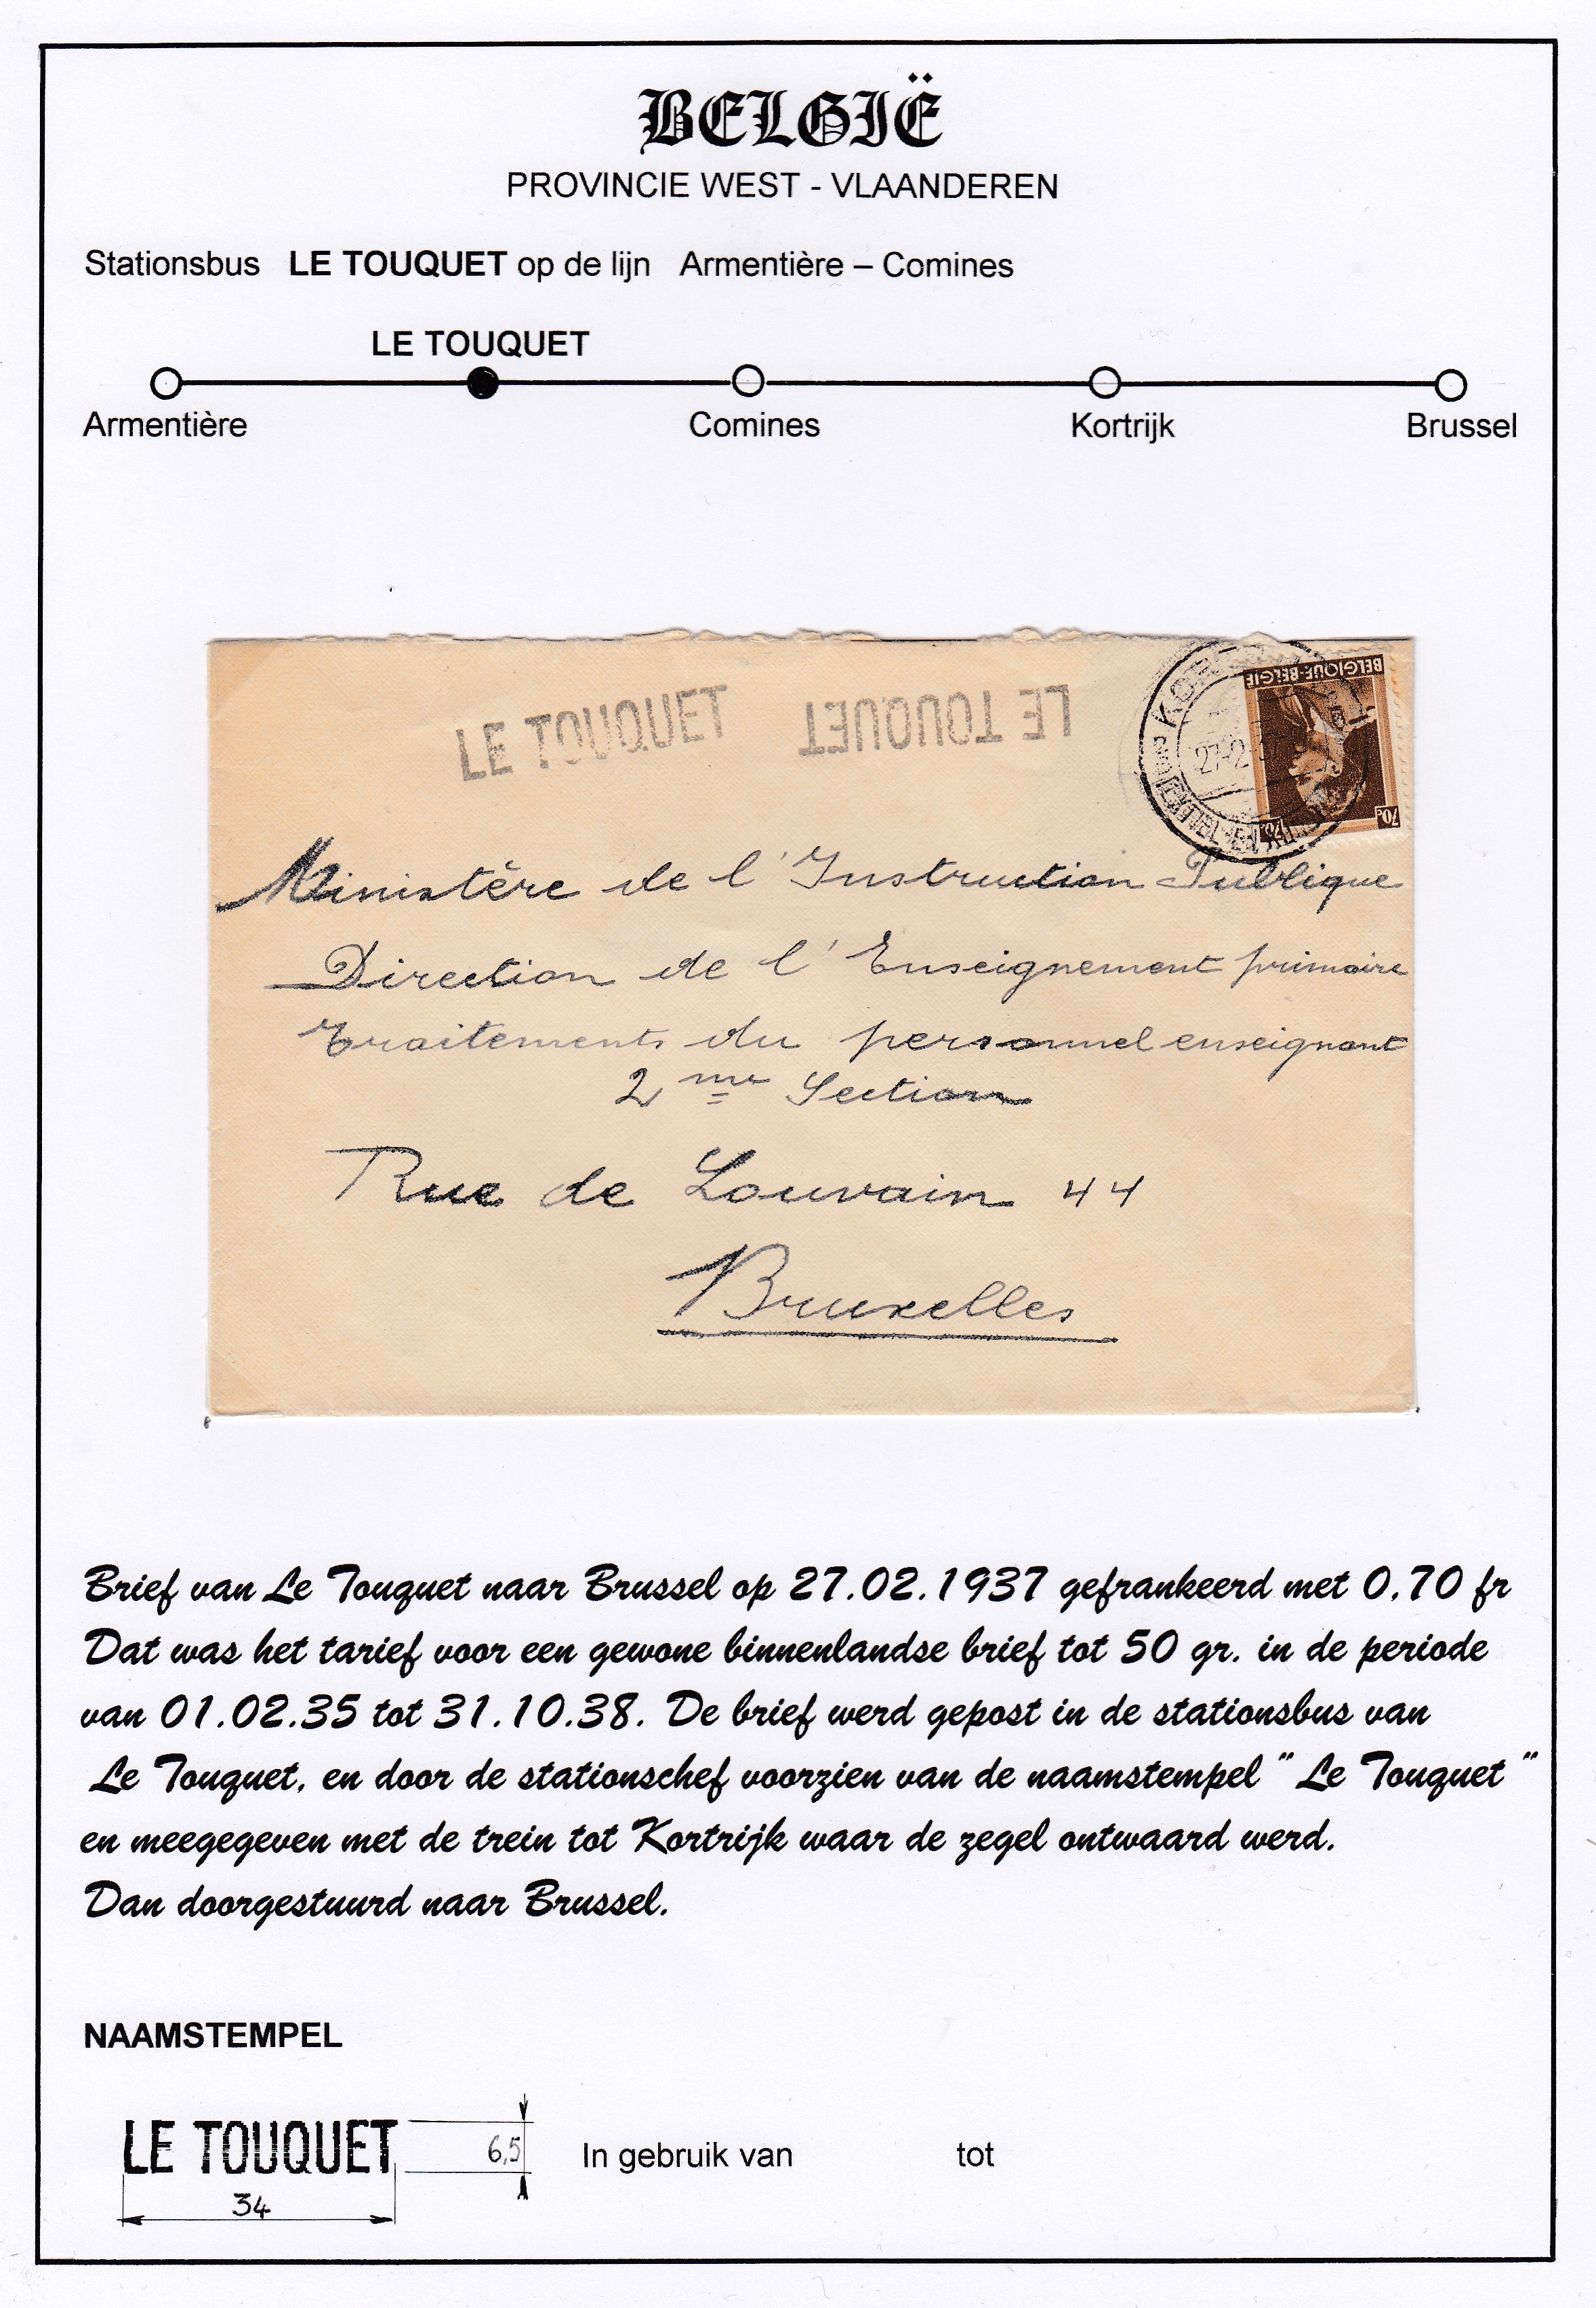 BELGIË
PROVINCIE WEST - VLAANDEREN
Stationsbus LE TOUQUET op de lijn Armentière – Comines
LE TOUQUET
Armentière Comines Kortrijk Brussel
LE TOUQUET LE TOUQUET
BELGIQUE-BELGIE
KOR
27-2
70c 70c
Ministère de l'Instruction Publique
Direction de l'Enseignement primaire
Traitements du personnel enseignant
2me Section
Rue de Louvain 44
Bruxelles
Brief van Le Touquet naar Brussel op 27.02.1937 gefrankeerd met 0,70 fr
Dat was het tarief voor een gewone binnenlandse brief tot 50 gr. in de periode
van 01.02.35 tot 31.10.38. De brief werd gepost in de stationsbus van
Le Touquet, en door de stationschef voorzien van de naamstempel " Le Touquet "
en meegegeven met de trein tot Kortrijk waar de zegel ontwaard werd.
Dan doorgestuurd naar Brussel.
NAAMSTEMPEL
LE TOUQUET 6,5 In gebruik van tot
34